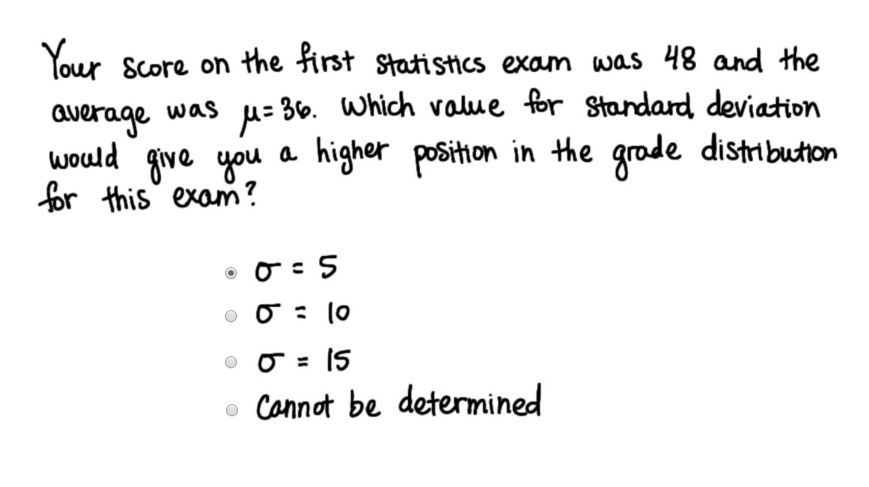 Your score on the first statistics exam was 48 and the
average was μ=36. Which value for standard deviation
would give you a higher position in the grade distribution
for this exam?
σ = 5
σ = 10
σ = 15
Cannot be determined